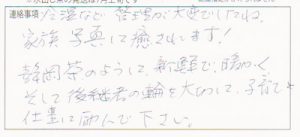 連絡事項
など 管理が大変でしたね。
家族写真に癒されます！
静岡茶のように、新鮮で、暖かく
そして後継者の輪を大切に、子育てと
仕事に励んで下さい。